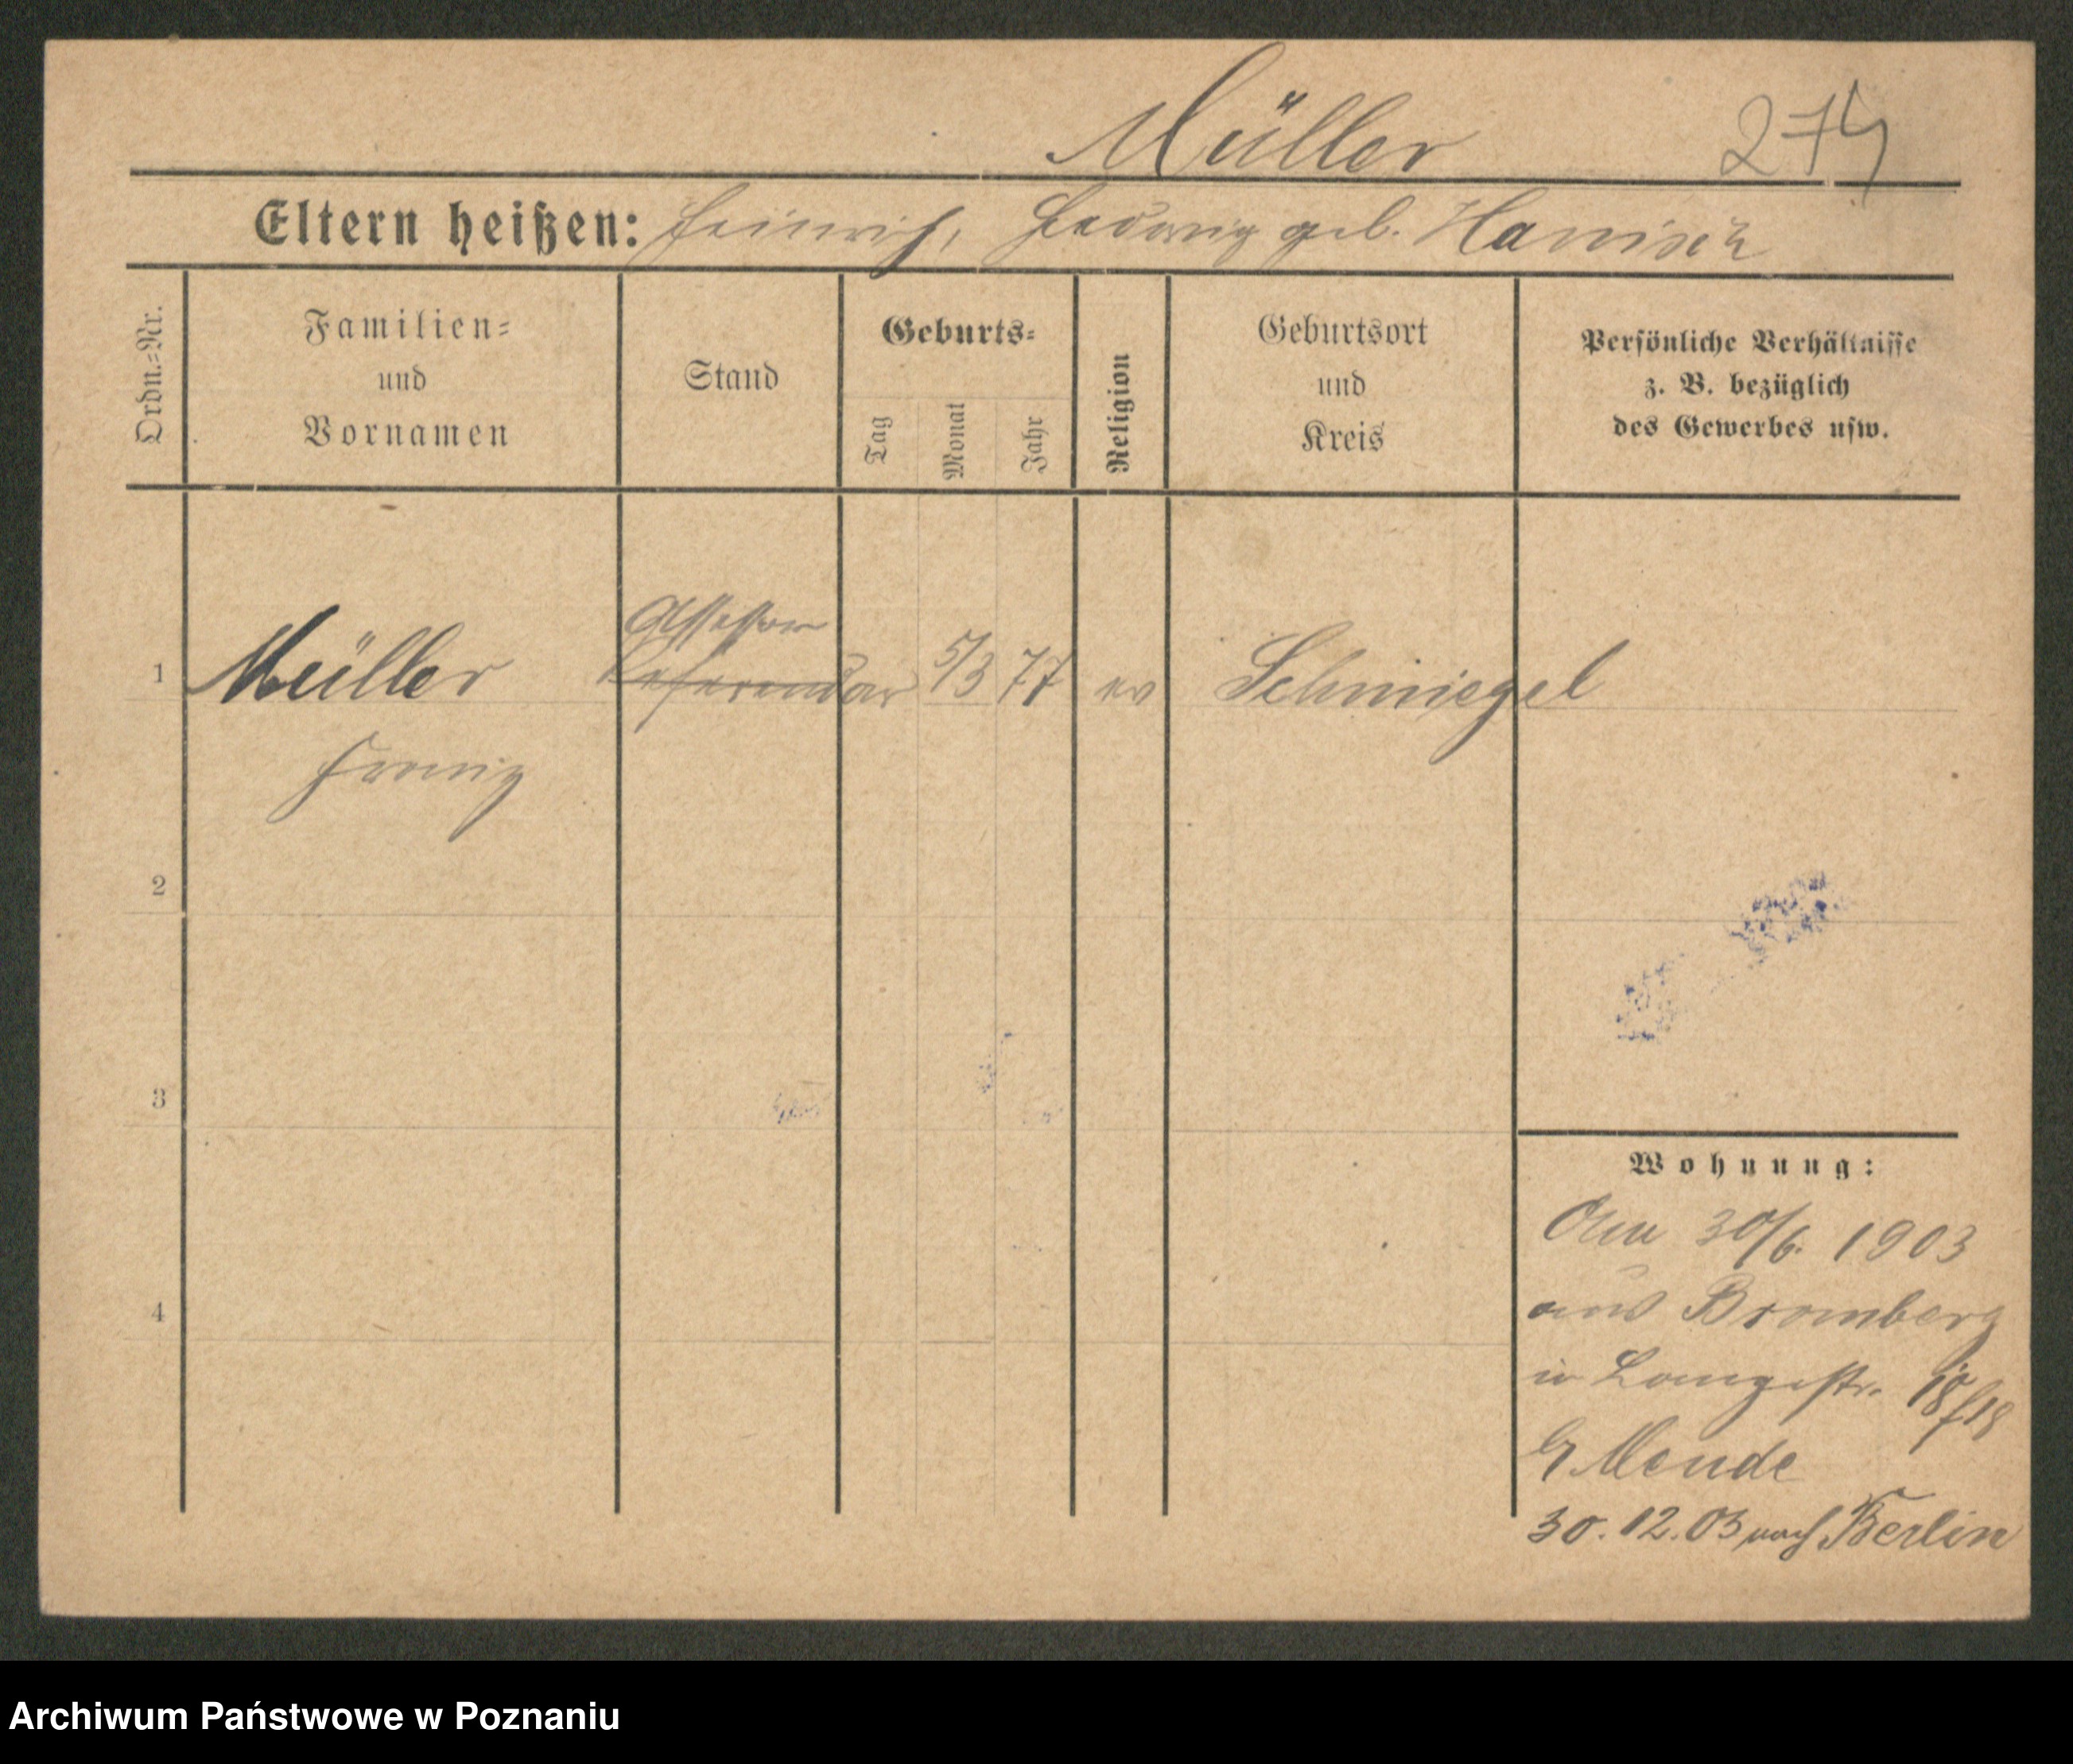 Müller 274
Eltern heißen: Heinrich, Hedwig geb. Hanisch
Ordn.=Nr.
Familien=
und
Vornamen
Stand
Geburts=
Tag
Monat
Jahr
Religion
Geburtsort
und
Kreis
Persönliche Verhältnisse
z. B. bezüglich
des Gewerbes usw.
Assessor
1 Müller Referendar 5/3 77 ev Schmiegel
2
3
4
Wohnung:
Am 30/6. 1903
aus Bromberg
in Langestr.
b/ Mende
30. 12. 03 nach Berlin
Archiwum Państwowe w Poznaniu